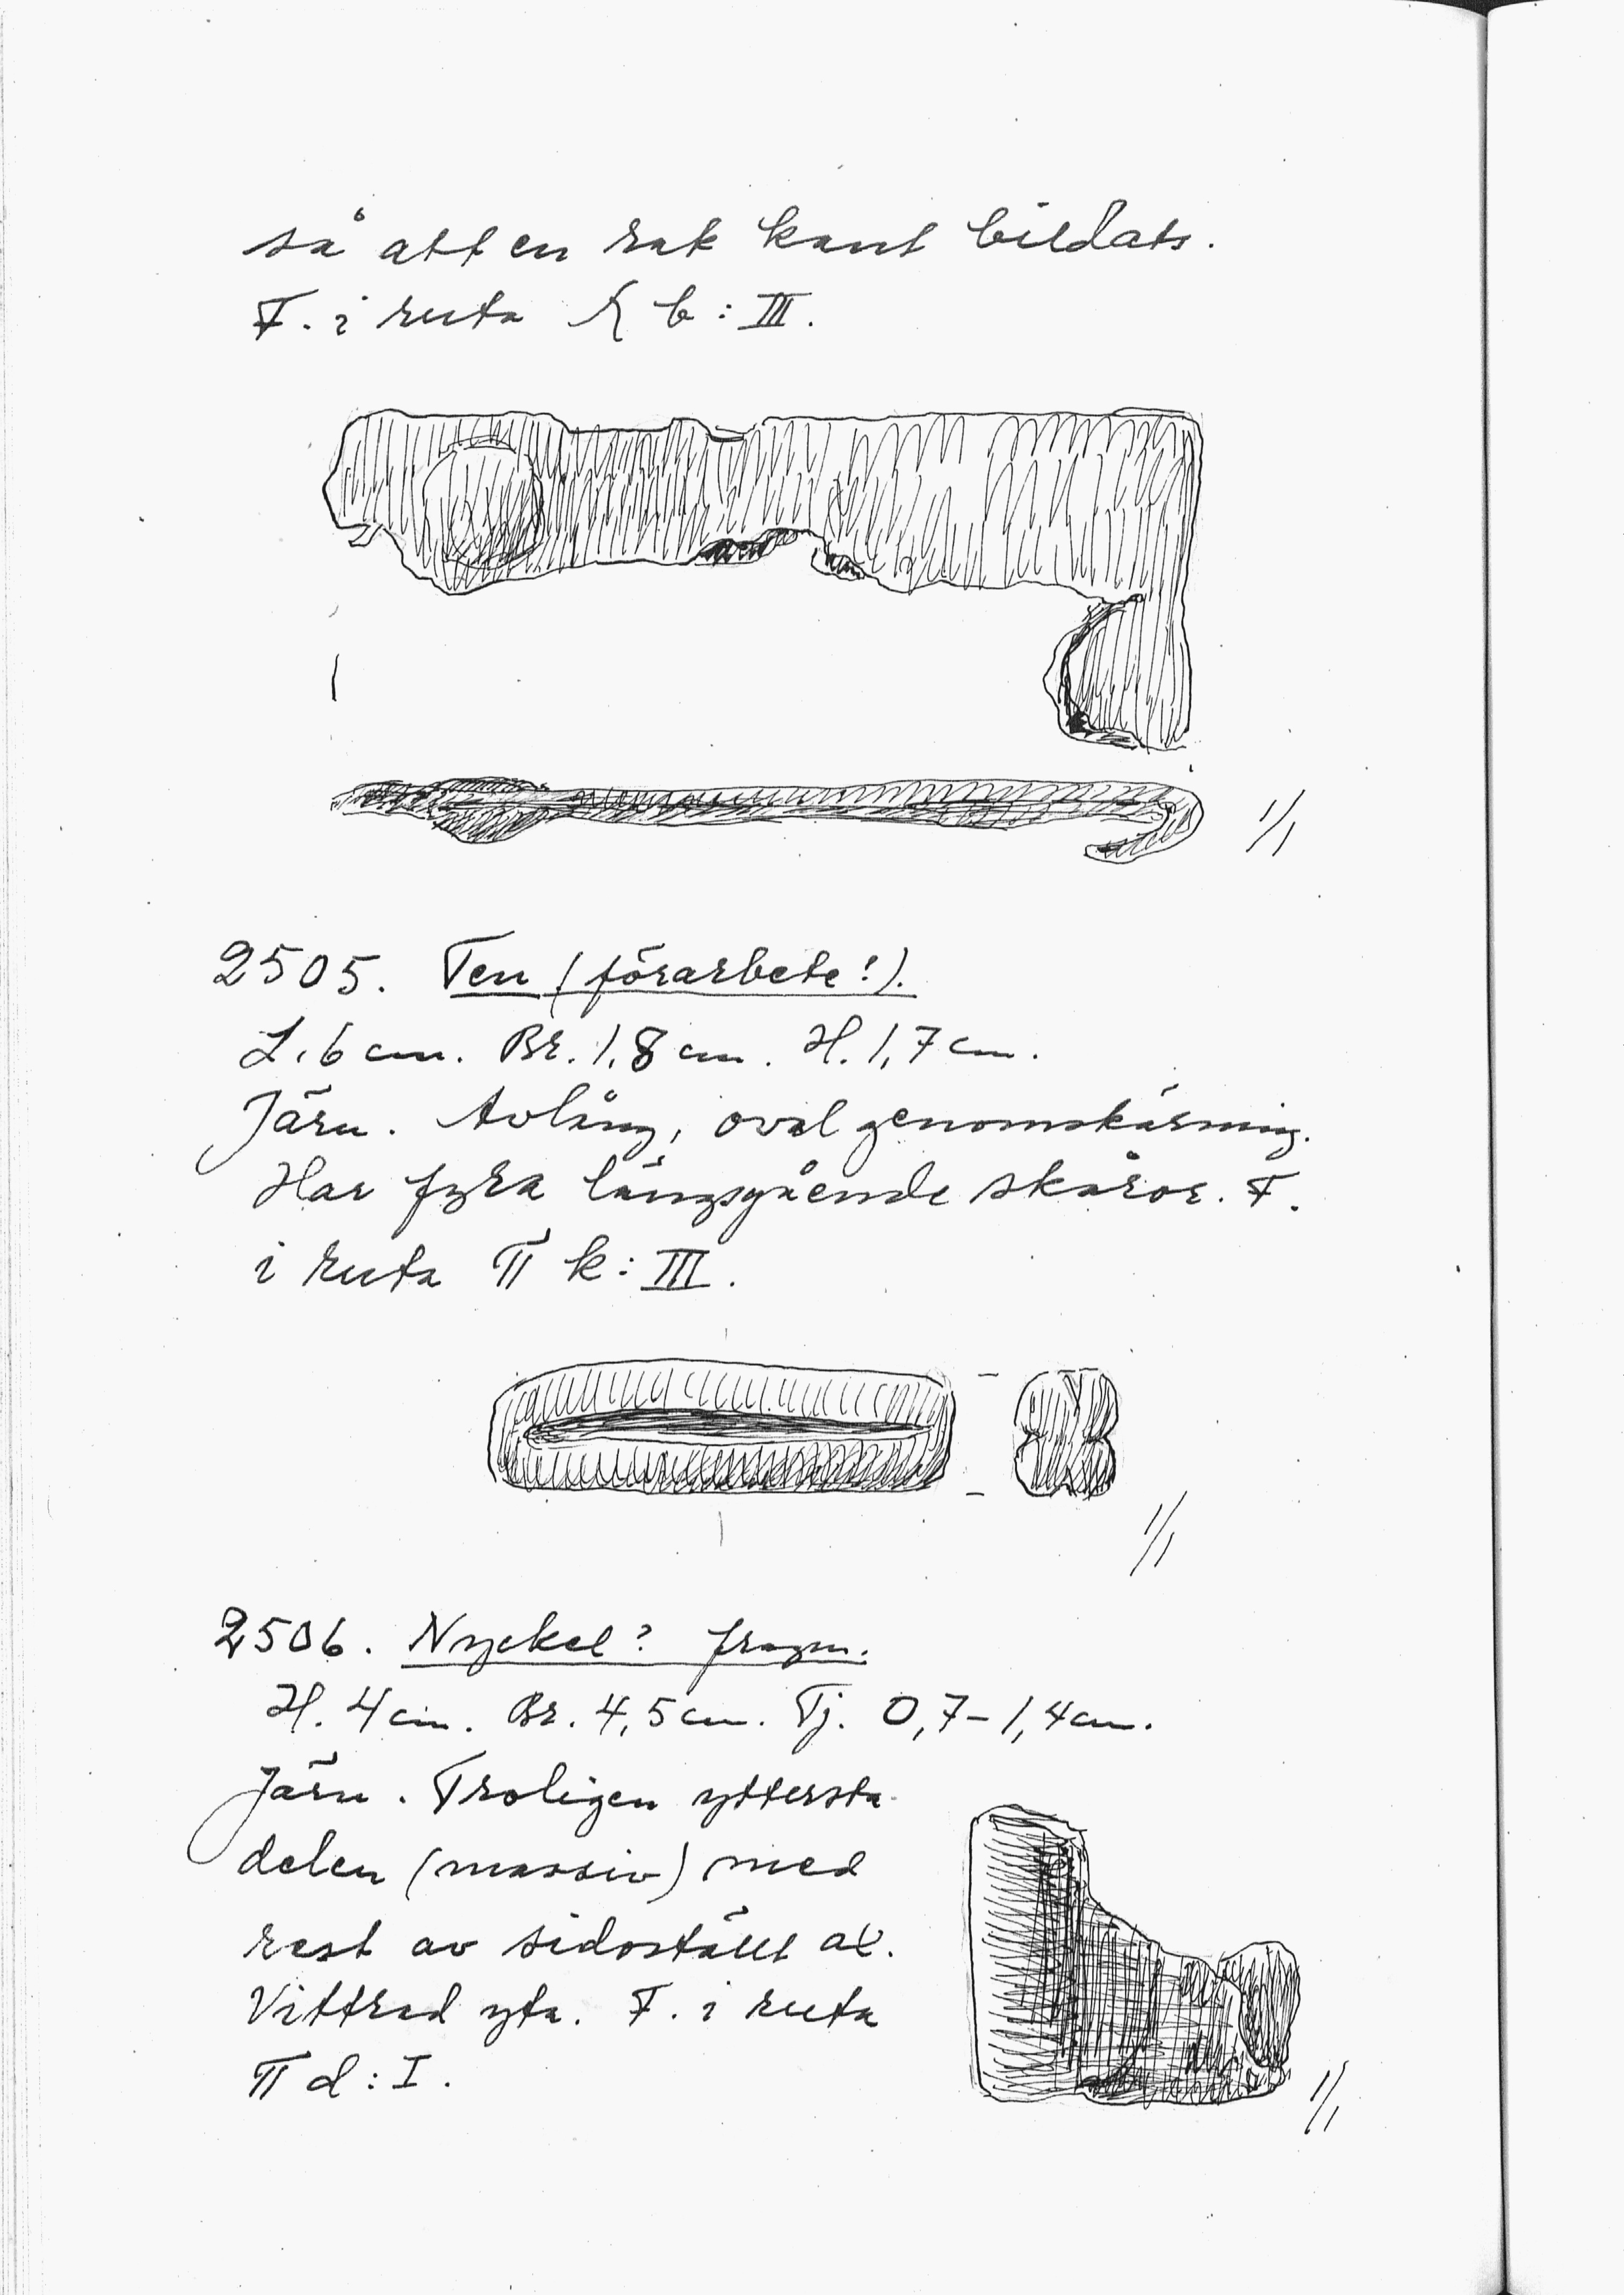 så att en rak kant bildats.
F. i ruta b: III.
1/1
2505. Ten (förarbete?).
L. 6 cm. Br. 1,8 cm. H. 1,7 cm.
Järn. Avlång, oval genomskärning.
Har fyra längsgående skåror. F.
i ruta Π k: III.
1/1
2506. Nyckel? fragm.
H. 4 cm. Br. 4,5 cm. Tj. 0,7-1,4 cm.
Järn. Troligen yttersta
delen (massiv) med
rest av sidoställt ax.
Vittrad yta. F. i ruta
Π d: I.
1/1